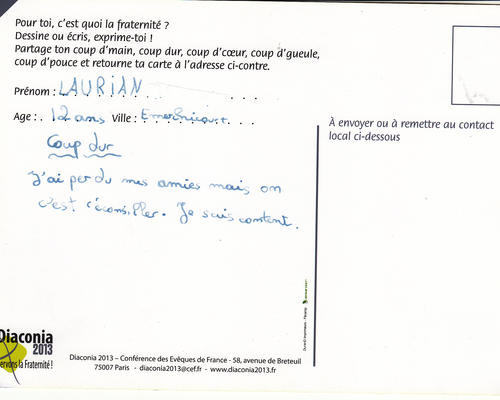 Pour toi, c'est quoi la fraternité ?
Dessine ou écris, exprime-toi !
Partage ton coup d'main, coup dur, coup d'cœur, coup d'gueule,
coup d'pouce et retourne ta carte à l'adresse ci-contre.
Prénom : LAURIAN
Age : 12 ans Ville :
Coup dur
J'ai perdu mes amies mais on
c'est . Je suis content.
À envoyer ou à remettre au contact
local ci-dessous
Diaconia
2013
ervons la Fraternité !
Diaconia 2013 – Conférence des Evêques de France - 58, avenue de Breteuil
75007 Paris - diaconia2013@cef.fr - www.diaconia2013.fr